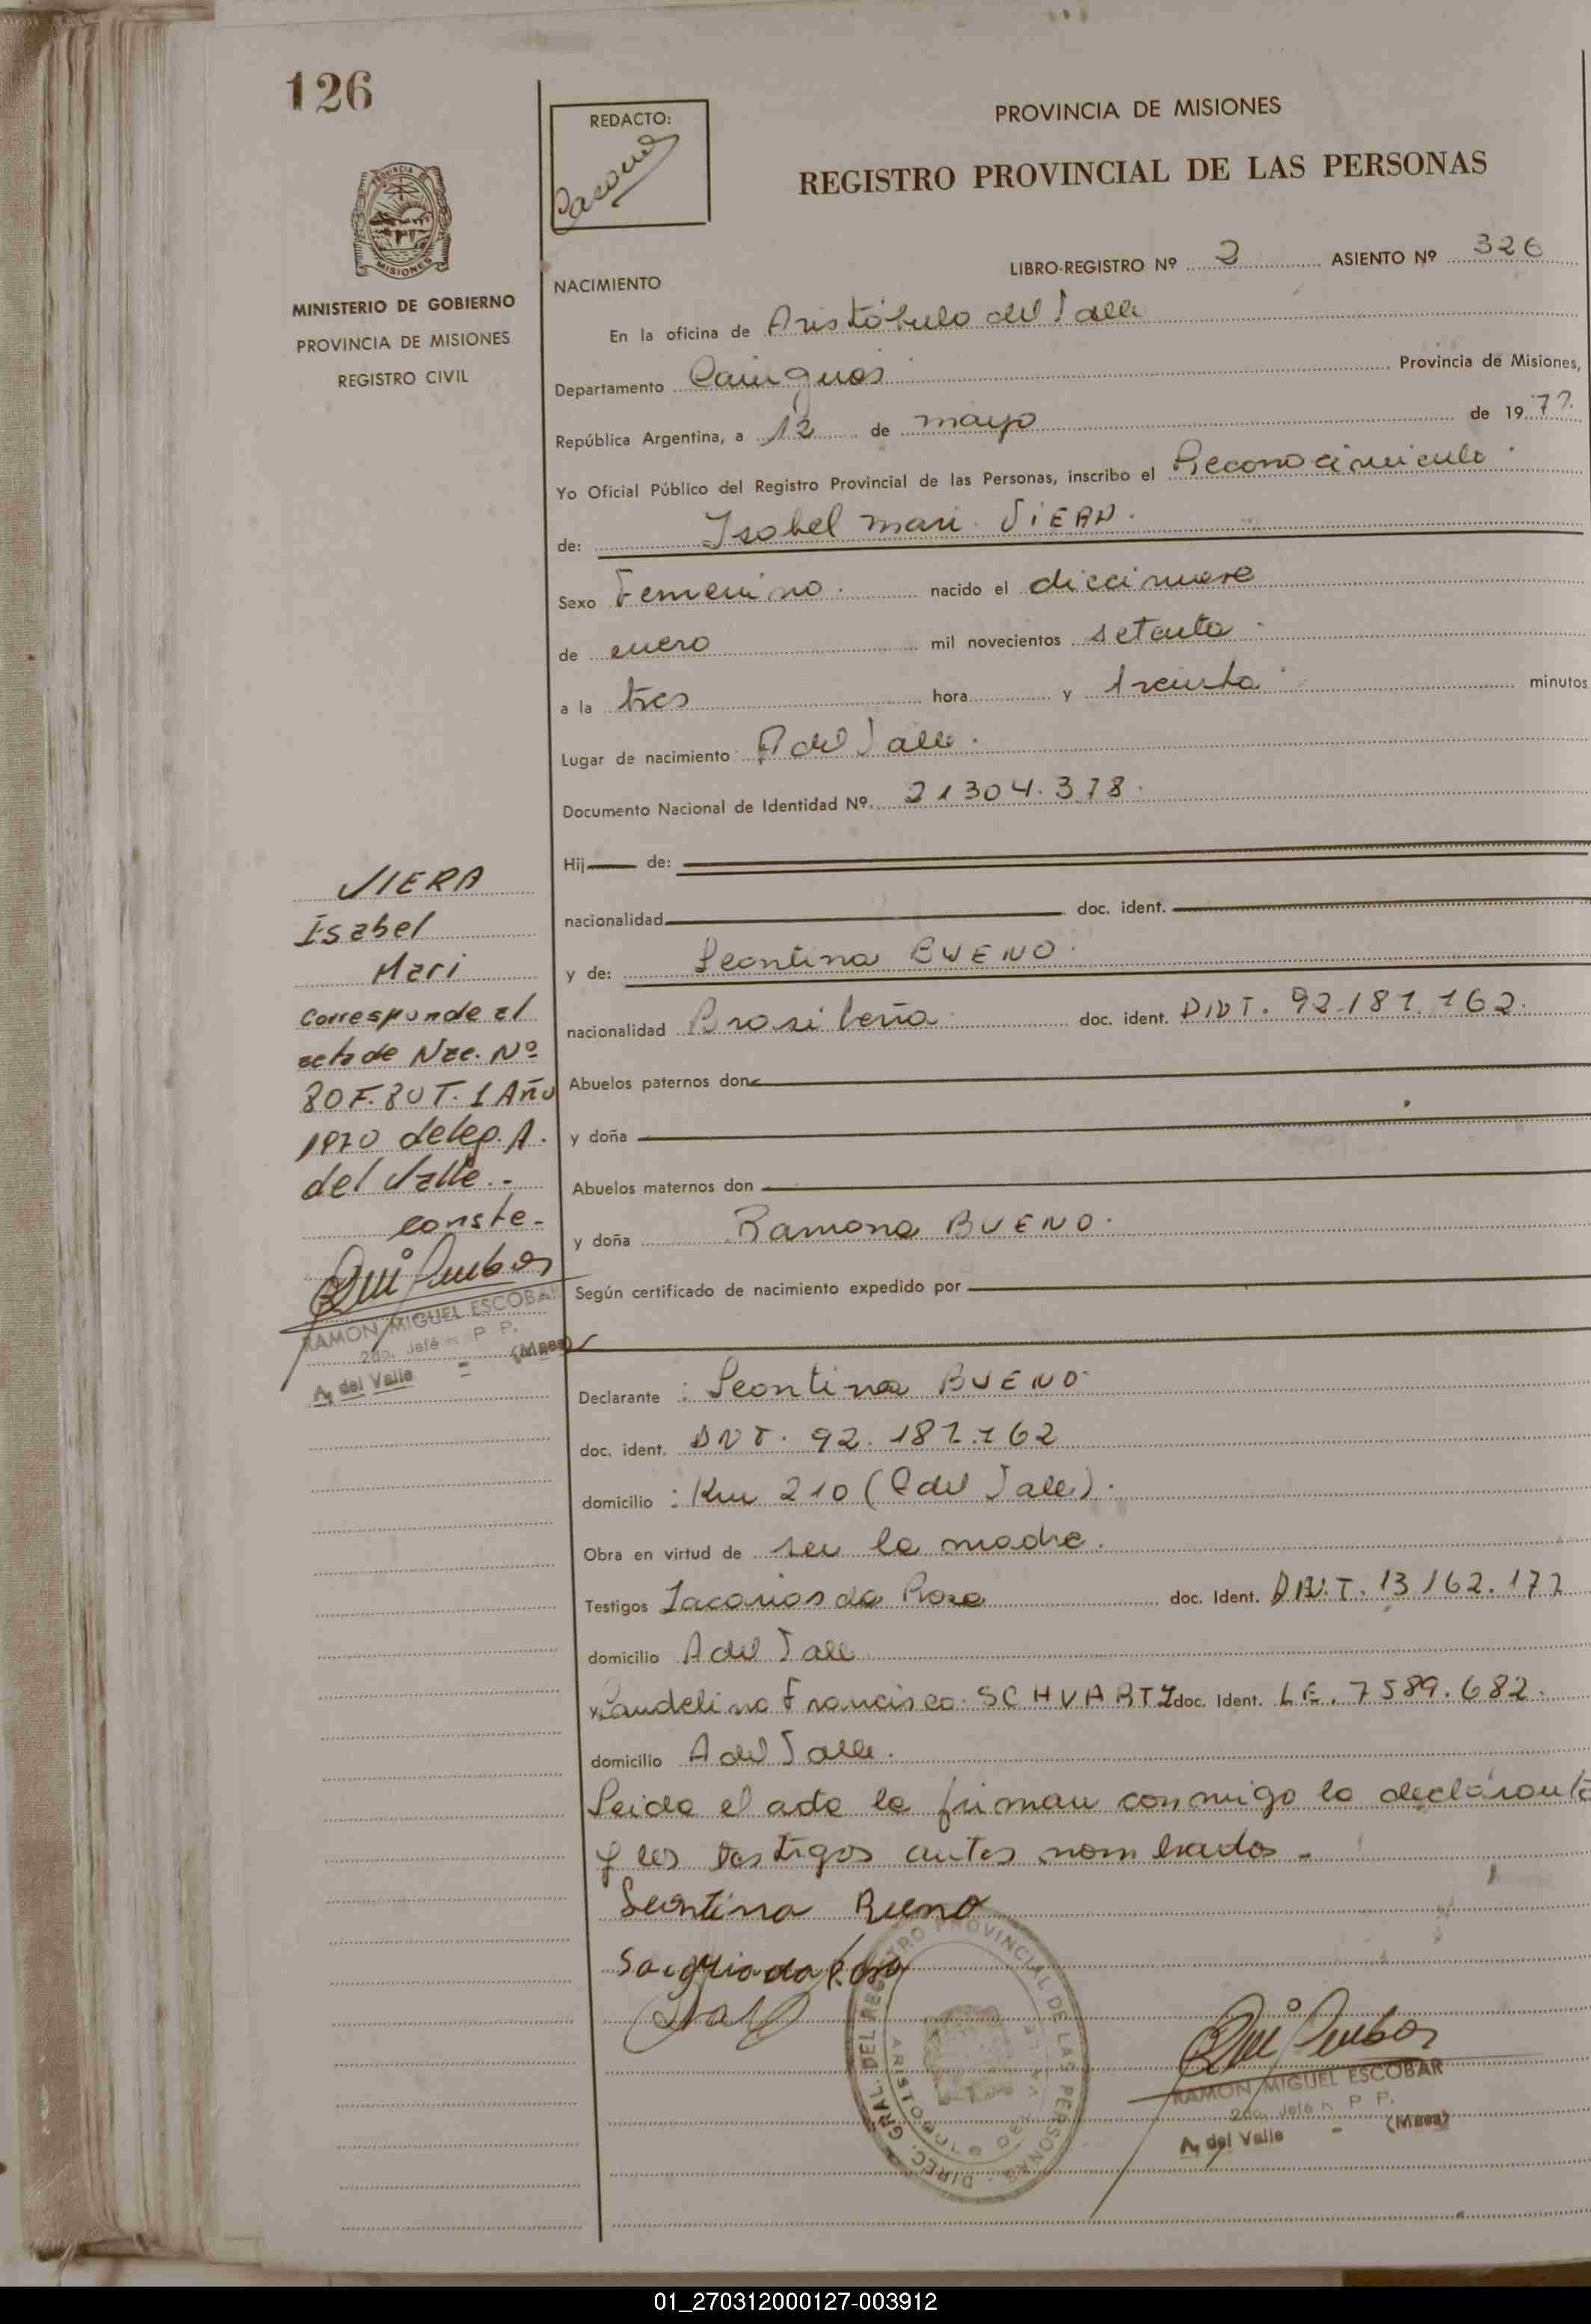 126
MINISTERIO DE GOBIERNO
PROVINCIA DE MISIONES
REGISTRO CIVIL
REDACTO:
PROVINCIA DE MISIONES
REGISTRO PROVINCIAL DE LAS PERSONAS
LIBRO-REGISTRO Nº 2 ASIENTO Nº 326
NACIMIENTO
En la oficina de Aristóbulo del Valle
Departamento Cainguas Provincia de Misiones,
República Argentina, a 12 de mayo de 1977
Yo Oficial Público del Registro Provincial de las Personas, inscribo el Reconocimiento
de: Isabel Mari VIERA.
Sexo Femenino. nacido el diecinueve
de enero mil novecientos setenta
a la tres hora y treinta minutos
Lugar de nacimiento A del Valle.
Documento Nacional de Identidad Nº 21304.378.
Hij de:
nacionalidad doc. ident.
y de: Leontina BUENO.
nacionalidad Brasileña doc. ident. DNT. 92.187.162.
Abuelos paternos don
y doña
Abuelos maternos don
y doña Ramona BUENO.
Según certificado de nacimiento expedido por
VIERA
Isabel
Mari
Corresponde al
acta de Nac. Nº
80 F. 80 T. 1 Año
1970 deleg. A.
del Valle.-
conste-
RAMON MIGUEL ESCOBAR
2do. Jefe R P P.
A, del Valle - (Mnes)
Declarante : Leontina BUENO
doc. ident. DNT. 92.187.162
domicilio : Km 210 (A del Valle).
Obra en virtud de ser la madre.
Testigos Zacarias da Rosa doc. Ident. DNT. 13162.177
domicilio A del Valle
y Laudelino Francisco SCHVARTZ doc. Ident. LE. 7589.682.
domicilio A del Valle.
Leida el acta la firman conmigo la declarante
y los testigos antes nombrados -
Leontina Bueno
DIREC. GRAL. DEL REGISTRO PROVINCIAL DE LAS PERSONAS
ARISTOBULO DEL VALLE
RAMON MIGUEL ESCOBAR
2do. Jefe R P P.
A, del Valle - (Mnes)
01_270312000127-003912